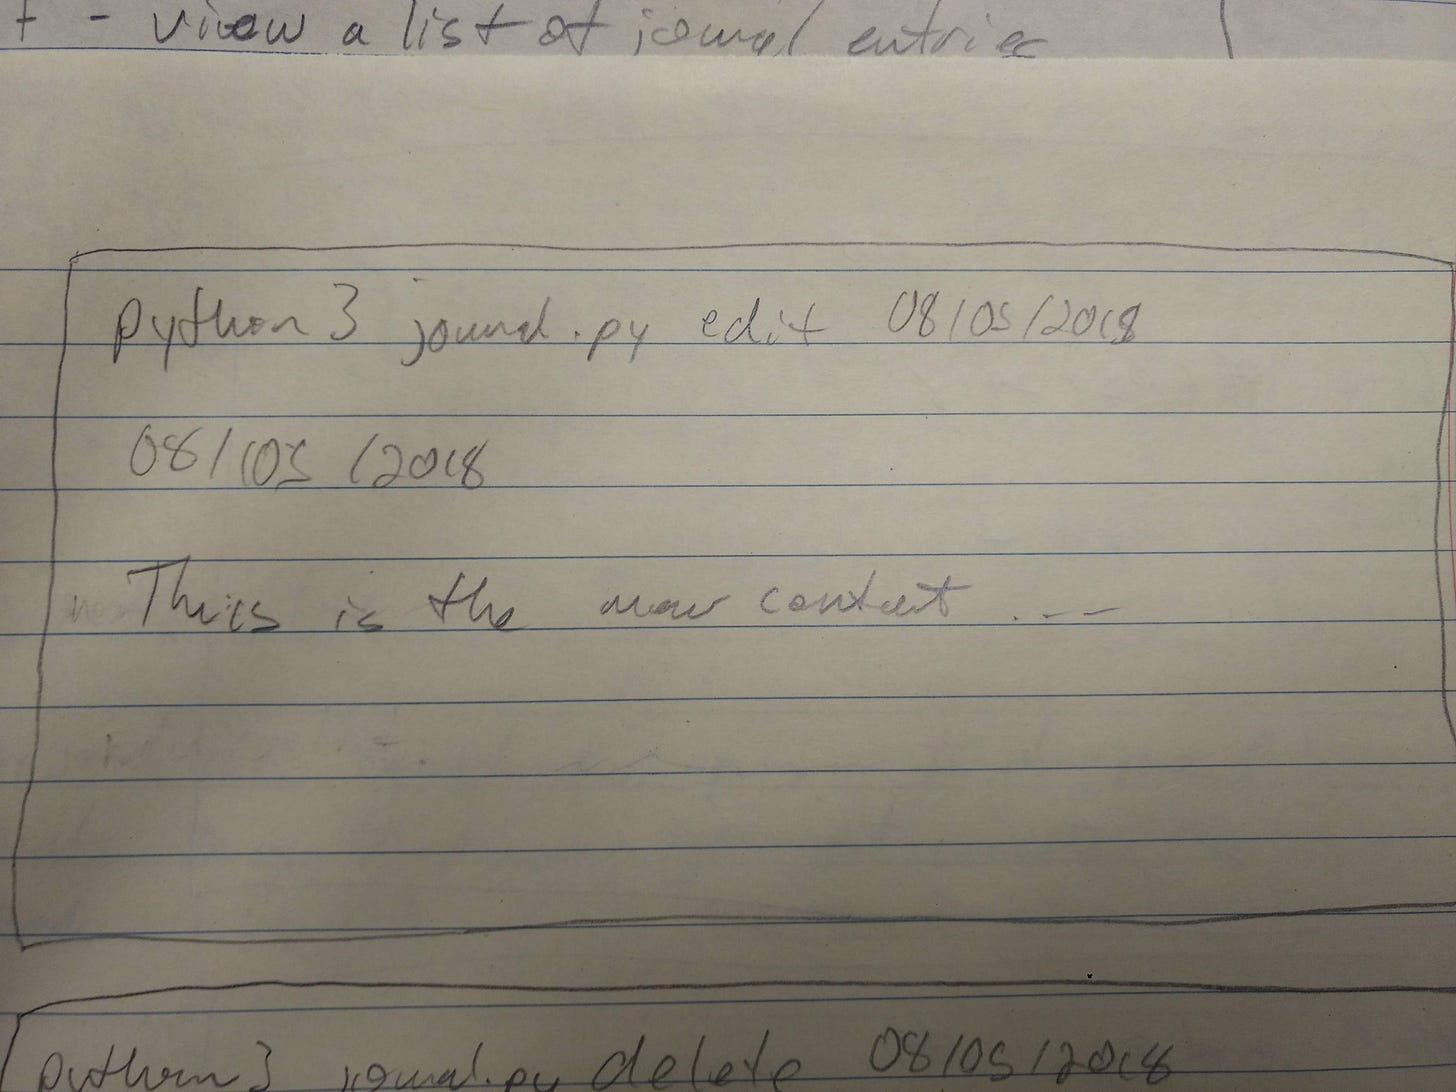 t - view a list of journal entries
python3 journal.py edit 08/05/2018
08/05/2018
This is the new content ...
python3 journal.py delete 08/05/2018